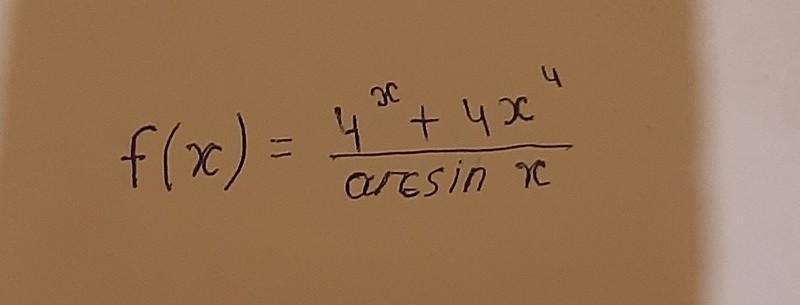 f(x) = \frac{4^x + 4x^4}{\arcsin x}